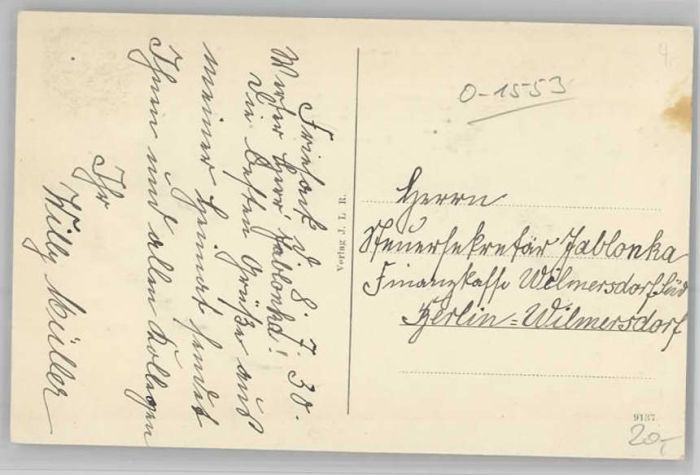 Friesack d. 8. 7. 30.
Werter Herr Jablonka!
Die besten Grüße aus
meiner Heimat sendet
Ihnen und allen Kollegen
Ihr
Willy Müller
Verlag J. L. R.
O-1553
Herrn
Steuersekretär Jablonka
Finanzkasse Wilmersdorf-Süd
Berlin=Wilmersdorf
9137
20,-